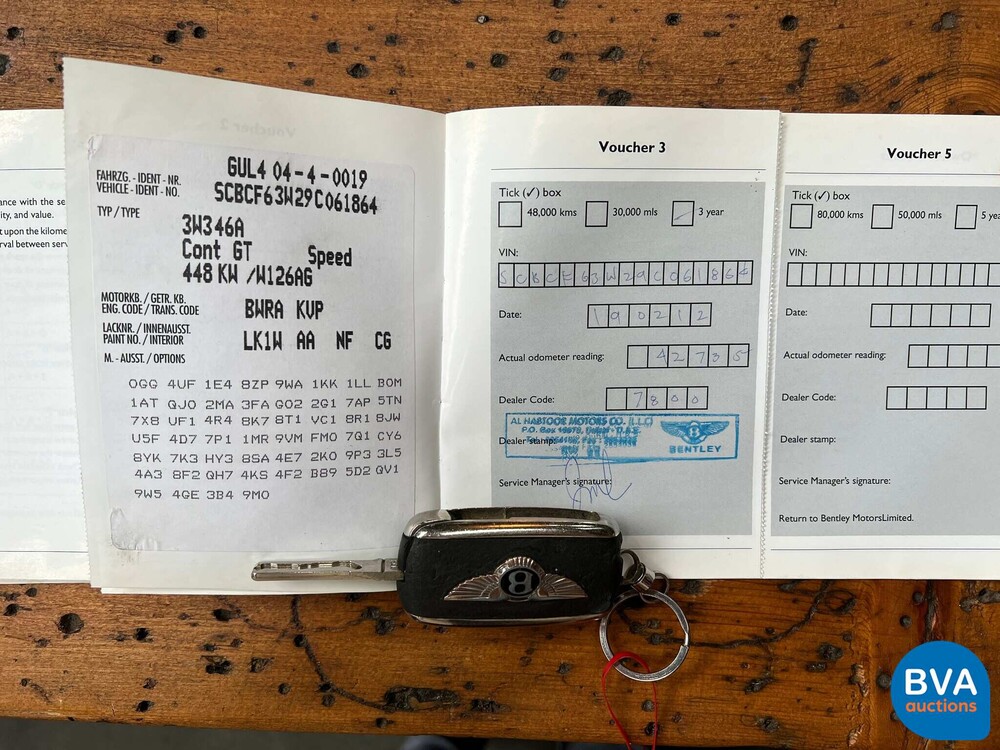 ance with the se
ity, and value.
t upon the kilome
rval between serv
Voucher 2
FAHRZG. - IDENT - NR.
VEHICLE - IDENT - NO.
GUL4 04-4-0019
SCBCF63W29C061864
TYP / TYPE
3W346A
Cont GT Speed
448 KW /W126AG
MOTORKB. / GETR. KB.
ENG. CODE / TRANS. CODE
BWRA KVP
LACKNR. / INNENAUSST.
PAINT NO. / INTERIOR
LK1W AA NF CG
M. - AUSST. / OPTIONS
0GG 4UF 1E4 8ZP 9WA 1KK 1LL B0M
1AT QJ0 2MA 3FA G02 2G1 7AP 5TN
7X8 UF1 4R4 8K7 8T1 VC1 8R1 8JW
U5F 4D7 7P1 1MR 9VM FM0 7Q1 CY6
8YK 7K3 HY3 8SA 4E7 2K0 9P3 3L5
4A3 8F2 QH7 4KS 4F2 B89 5D2 QV1
9W5 4GE 3B4 9M0
Voucher 3
Tick (✓) box
48,000 kms 30,000 mls 3 year
VIN:
SCBCF63W29C061864
Date: 190212
Actual odometer reading: 42735
Dealer Code: 7800
AL HABTOOR MOTORS CO. (LLC)
P.O. Box Dubai - U.A.E.
BENTLEY
Dealer stamp:
Service Manager's signature:
Voucher 5
Tick (✓) box
80,000 kms 50,000 mls 5 yea
VIN:
Date:
Actual odometer reading:
Dealer Code:
Dealer stamp:
Service Manager's signature:
Return to Bentley MotorsLimited.
B
BVA
auctions